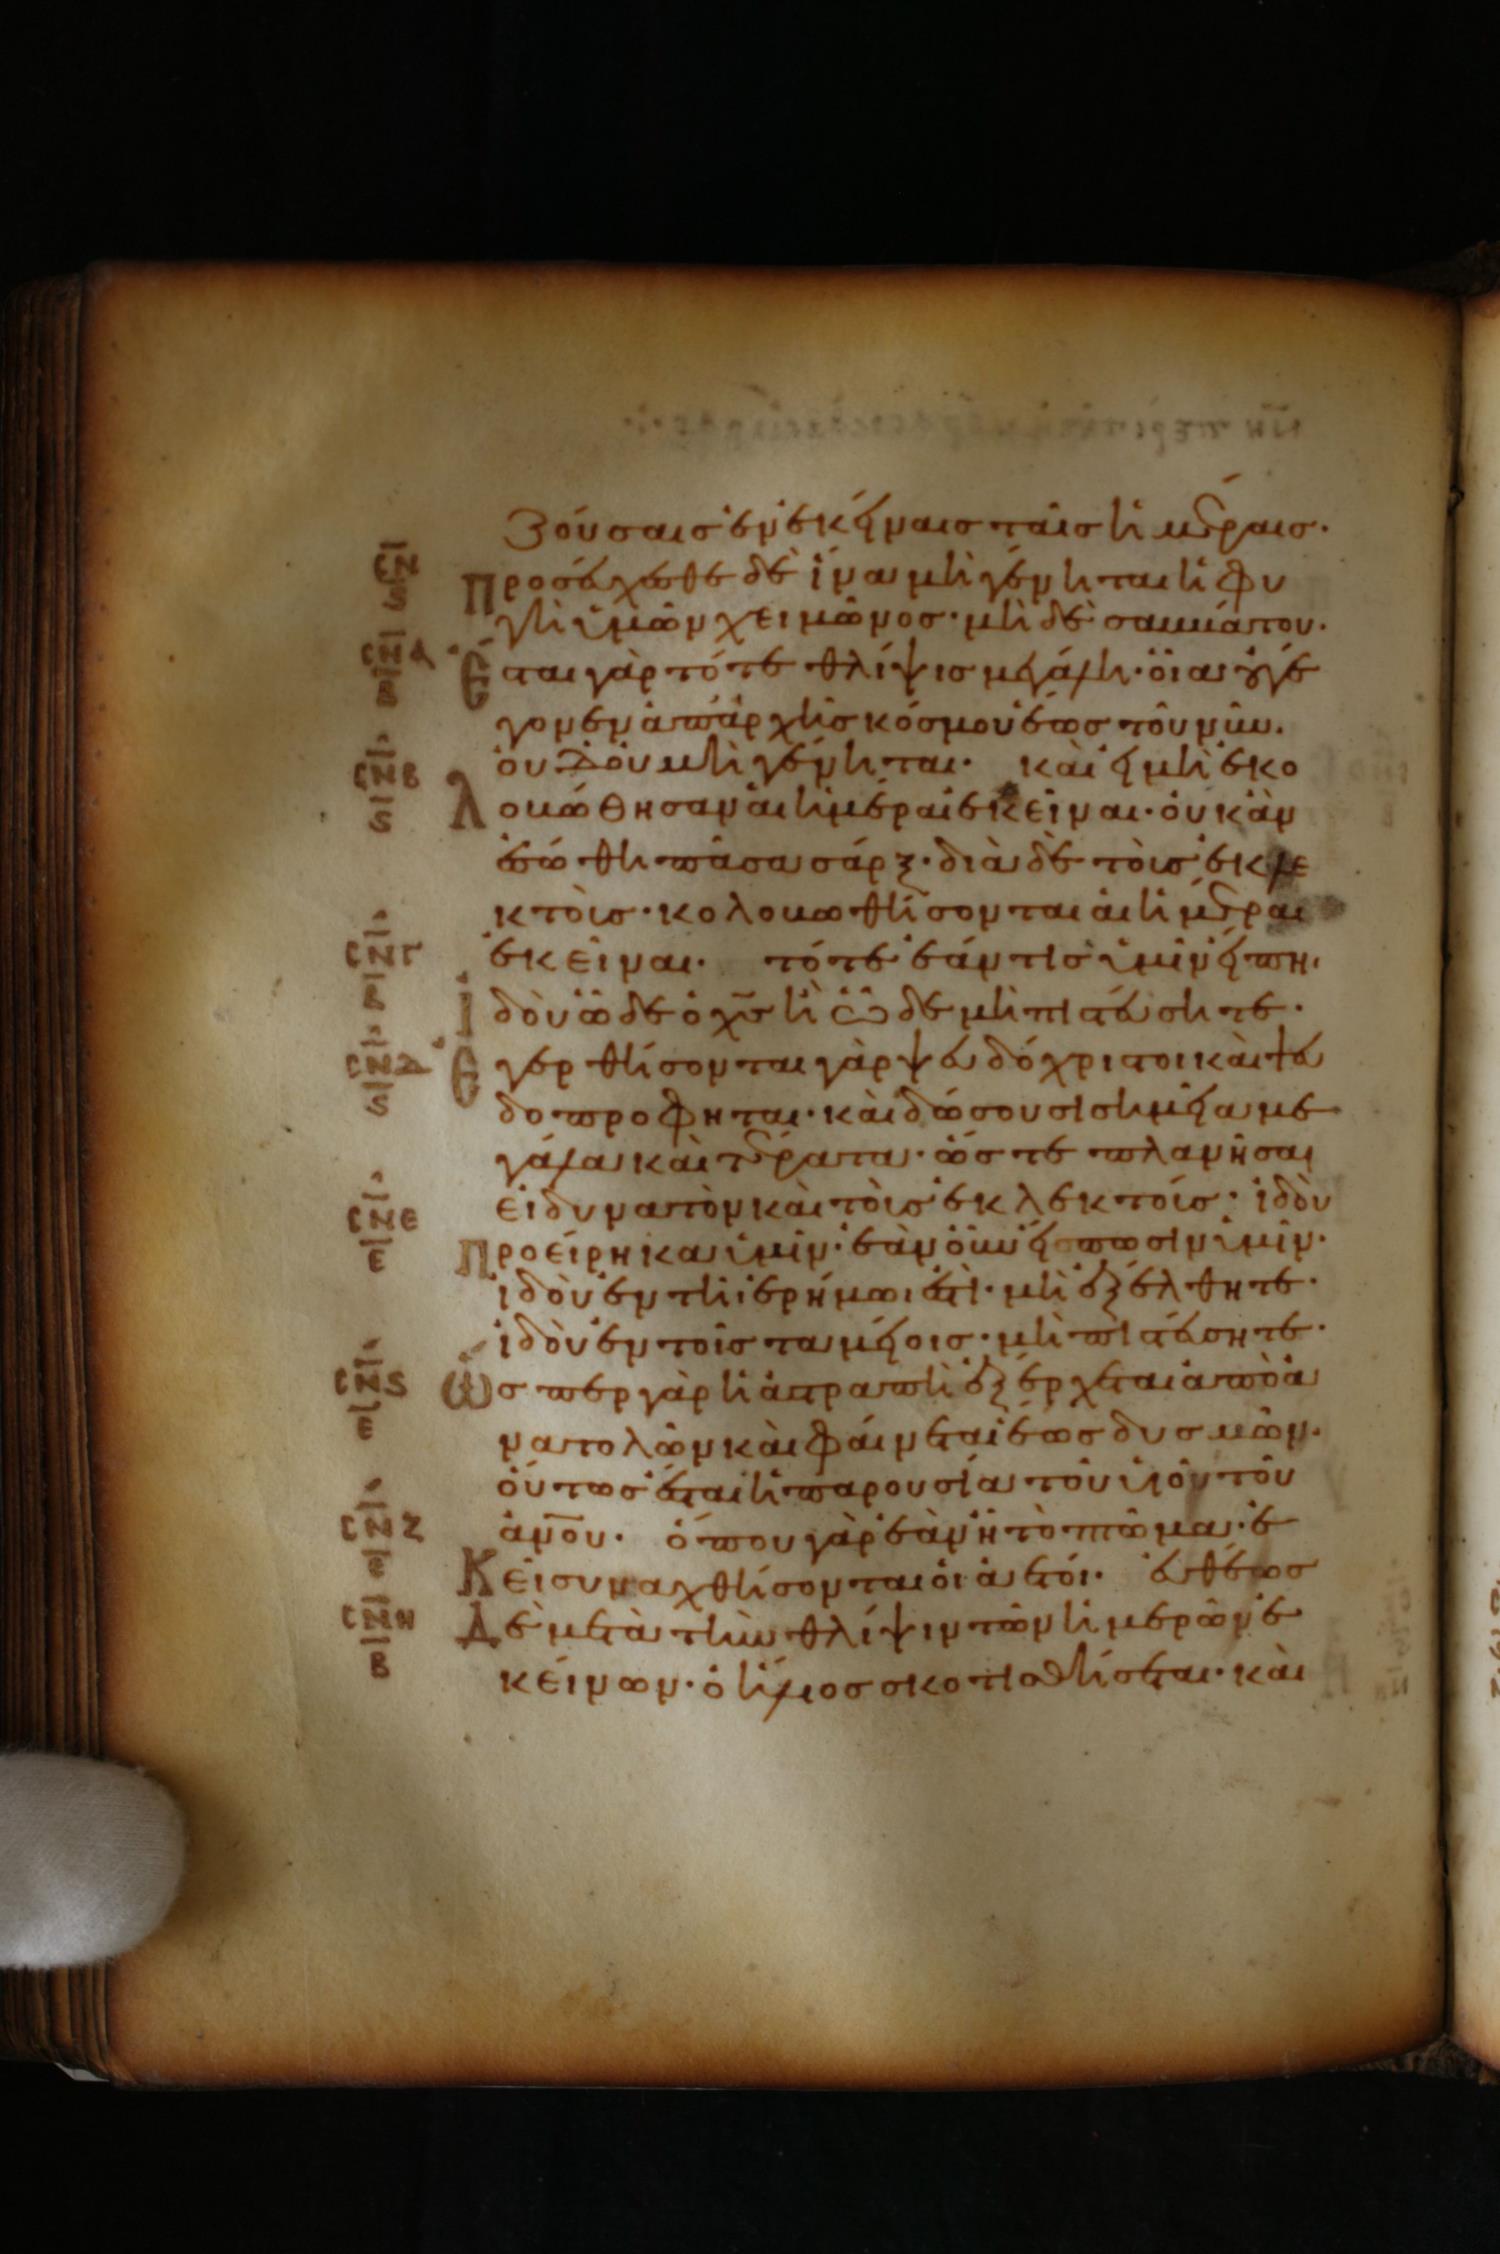 ζούσαισ ἐν ἐκείναισ ταῖσ ἡμέραισ·
CΝ
Ϛ
Προσεύχεσθε δὲ ἵνα μὴ γένηται ἡ φυ
γὴ ὑμῶν χειμῶνοσ· μὴ δὲ σαββάτου·
CΝΑ
Β
Ἔσται γὰρ τότε θλίψισ μεγάλη· οἵα οὐ γέ
γονεν ἀπἀρχῆσ κόσμου ἕωσ τοῦ νῦν.
CΝΒ
Ϛ
οὐδ οὐ μὴ γένηται· καὶ εἰ μὴ ἐκο
Λοβώθησαν αἱ ἡμέραι ἐκεῖναι· οὐκ ἂν
ἐσώθη πᾶσα σάρξ· διὰ δὲ τοὺσ ἐκλε
κτοὺσ· κολοβωθήσονται αἱ ἡμέραι
CΝΓ
Β
ἐκεῖναι· τότε ἐάν τισ ὑμῖν εἴπη·
Ἰδοὺ ὧδε ὁ χ̅σ̅ ἢ ὧδε μὴ πιστεύσητε·
CΝΔ
Ϛ
Ἐγερθήσονται γὰρ ψευδόχριστοι καὶ ψευ
δοπροφῆται· καὶ δώσουσι σημεῖα με
γάλα καὶ τέρατα· ὥστε πλανῆσαι
CΝΕ
Ε
εἰ δυνατὸν καὶ τοὺσ ἐκλεκτούσ· ἰδοὺ
Προείρηκα ὑμῖν· ἐὰν οὖν εἴπωσιν ὑμῖν·
ἰδοὺ ἐν τῆ ἐρήμωι ἐστὶ· μὴ ἐξέλθητε·
ἰδοὺ ἐν τοῖσ ταμείοισ· μὴ πιστεύσητε·
CΝϚ
Ε
Ὥσπερ γὰρ ἡ ἀστραπὴ ἐξέρχεται ἀπὸ ἀ
νατολῶν καὶ φαίνεται ἕωσ δυσμῶν·
οὕτωσ ἔσται ἡ παρουσία τοῦ υἱοῦ τοῦ
CΝΖ
Ε
ἀν̅ο̅υ̅· ὅπου γὰρ ἐὰν ἦ τὸ πτῶμα· ἐ
Κεῖ συναχθήσονται οἱ ἀετοί· εὐθέωσ
CΝΗ
Β
Δὲ μετὰ τὴν θλίψιν τῶν ἡμερῶν ἐ
κείνων· ὁ ἥλιοσ σκοτισθήσεται· καὶ